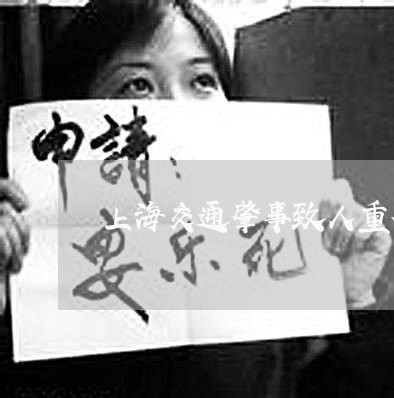 申請：
上海交通肇事致人重
安乐死